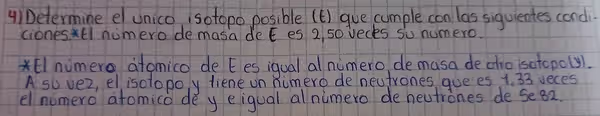 4) Determine el unico isotopo posible (E) que cumple con las siguientes condi-
ciones *El número de masa de E es 2,50 veces su numero.
*El número átomico de E es igual al número de masa de otro isotopo (y).
A su vez, el isotopo y tiene un número de neutrones que es 1.33 veces
el número átomico de y e igual al número de neutrones de Se 82.